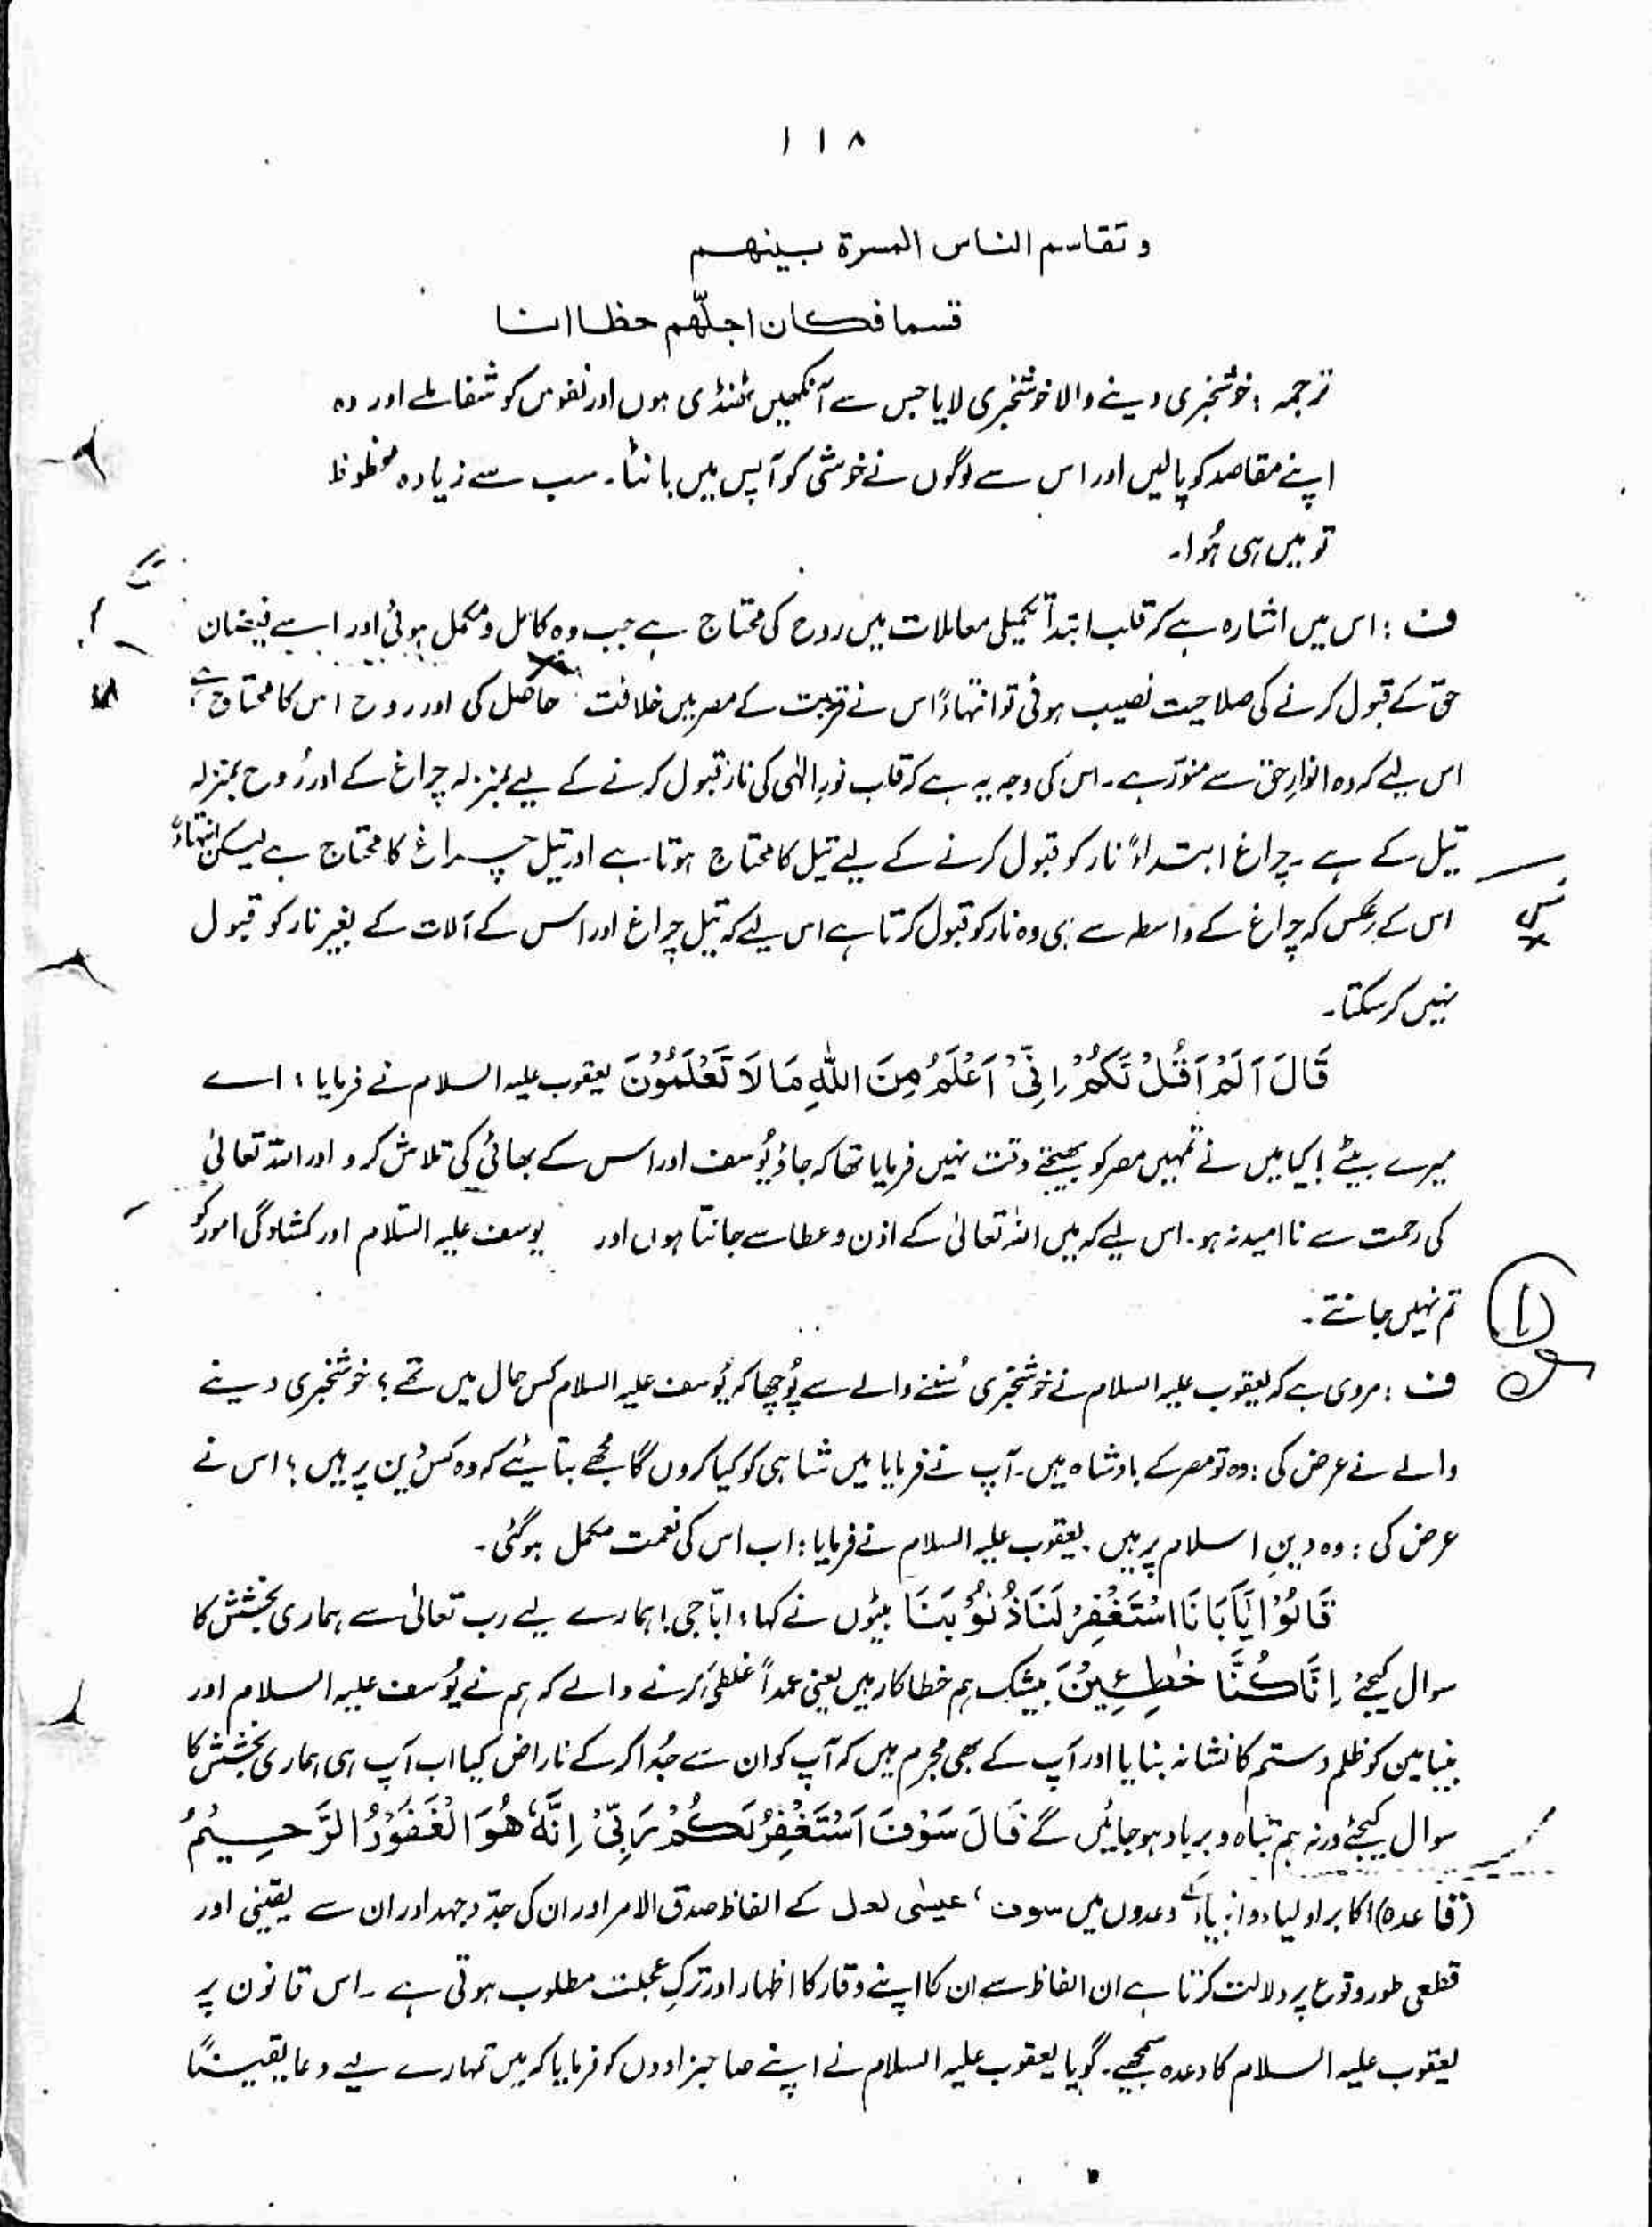 ۱۱۸
و تقاسم الناس المسرة بينهم
قسما فكان اجلّهم حظا انا
ترجمہ : خوشخبری دینے والا خوشخبری لایا جس سے آنکھیں ٹھنڈی ہوں اور نفوس کو شفا ملے اور وہ
اپنے مقاصد کو پالیں اور اس سے لوگوں نے خوشی کو آپس میں بانٹا۔ سب سے زیادہ محظوظ
تو میں ہی ہُوا۔
ف : اس میں اشارہ ہے کہ قلب ابتداً تکمیلی معاملات میں روح کی محتاج ہے جب وہ کامل و مکمل ہوئی اور اسے فیضان
حق کے قبول کرنے کی صلاحیت نصیب ہوئی تو انتہاءً اس نے قربت کے مصر میں خلافت حاصل کی اور روح اس کا محتاج ہے ،
اس لیے کہ وہ انوارِ حق سے منوّر ہے۔ اس کی وجہ یہ ہے کہ قلب نورِ الٰہی کی نار قبول کرنے کے لیے بمنزلہ چراغ کے اور رُوح بمنزلہ
تیل کے ہے ۔ چراغ ابتداءً نار کو قبول کرنے کے لیے تیل کا محتاج ہوتا ہے اور تیل چراغ کا محتاج ہے لیکن انتہاءً
اس کے برعکس کہ چراغ کے واسطہ سے ہی وہ نار کو قبول کرتا ہے اس لیے کہ تیل چراغ اور اس کے آلات کے بغیر نار کو قبول
نہیں کرسکتا۔
قَالَ اَلَمْ اَقُلْ لَّكُمْ اِنِّىْ اَعْلَمُ مِنَ اللّٰهِ مَا لَا تَعْلَمُوْنَ یعقوب علیہ السلام نے فرمایا : اے
میرے بیٹے ! کیا میں نے تمہیں مصر کو بھیجتے وقت نہیں فرمایا تھا کہ جاؤ یُوسف اور اس کے بھائی کی تلاش کرو اور اللہ تعالیٰ
کی رحمت سے ناامید نہ ہو۔ اس لیے کہ میں اللہ تعالیٰ کے اذن و عطا سے جانتا ہوں اور یوسف علیہ السّلام اور کشادگی امور کو
تم نہیں جانتے ۔
ف : مروی ہے کہ یعقوب علیہ السلام نے خوشخبری سُننے والے سے پُوچھا کہ یُوسف علیہ السلام کس حال میں تھے ؟ خوشخبری دینے
والے نے عرض کی : وہ تو مصر کے بادشاہ ہیں۔ آپ نے فرمایا میں شاہی کو کیا کروں گا مجھے بتائیے کہ وہ کس دین پر ہیں ؟ اس نے
عرض کی : وہ دینِ اسلام پر ہیں ۔ یعقوب علیہ السلام نے فرمایا : اب اس کی نعمت مکمل ہوگئی ۔
قَالُوْا يٰٓاَبَانَا اسْتَغْفِرْ لَنَا ذُنُوْبَنَا بیٹوں نے کہا ؛ ابّا جی ! ہمارے لیے رب تعالیٰ سے ہماری بخشش کا
سوال کیجئے اِنَّا كُنَّا خٰطِـِٕيْنَ بیشک ہم خطا کار ہیں یعنی عمداً غلطی کرنے والے کہ ہم نے یُوسف علیہ السلام اور
بنیامین کو ظلم و ستم کا نشانہ بنایا اور آپ کے بھی مجرم ہیں کہ آپ کو ان سے جُدا کرکے ناراض کیا اب آپ ہی ہماری بخشش کا
سوال کیجئے ورنہ ہم تباہ و برباد ہو جائیں گے قَالَ سَوْفَ اَسْتَغْفِرُ لَكُمْ رَبِّىْ اِنَّهٗ هُوَ الْغَفُوْرُ الرَّحِيْمُ
(قاعدہ) اکابر اولیاء و انبیاء کے وعدوں میں سوف ، عیسٰی لعل کے الفاظ صدق الامر اور ان کی جدّ و جہد اور ان سے یقینی اور
قطعی طور وقوع پر دلالت کرتا ہے ان الفاظ سے ان کا اپنے وقار کا اظہار اور ترکِ عجلت مطلوب ہوتی ہے ۔ اس قانون پر
یعقوب علیہ السلام کا وعدہ سمجھیے۔ گویا یعقوب علیہ السلام نے اپنے صاحبزادوں کو فرمایا کہ میں تمہارے لیے دعا یقیناً